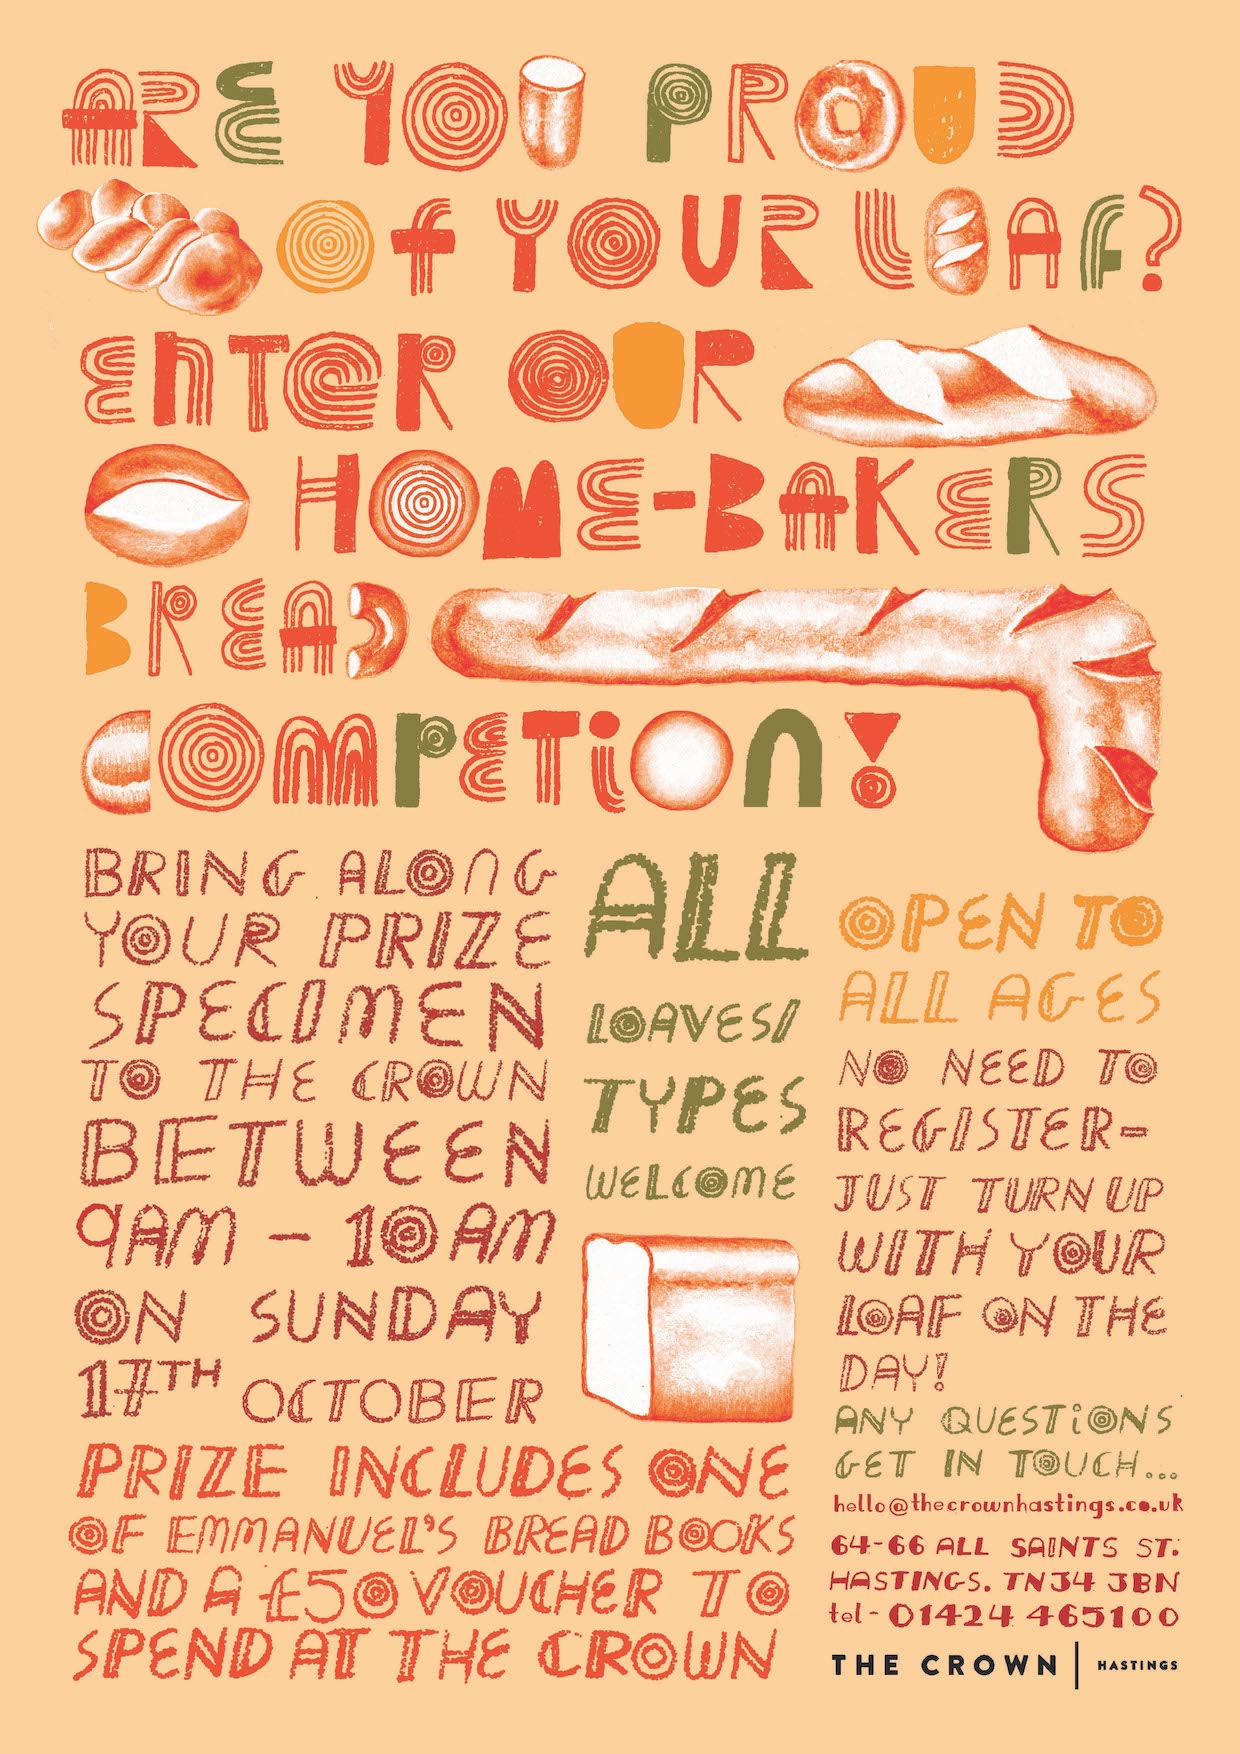 ARE YOU PROUD
Of YOUR LOAF?
EnTeR OUR
HOME-BAKERS
BREAD
COMPETiOn!
BRING ALONG
YOUR PRIZE
SPECIMEN
TO THE CROWN
BETWEEN
9AM - 10AM
ON SUNDAY
17TH OCTOBER
ALL
LOAVES/
TYPES
WELCOME
OPEN TO
ALL AGES
NO NEED TO
REGISTER-
JUST TURN UP
WITH YOUR
LOAF ON THE
DAY!
ANY QUESTiONS
GET IN TOUCH...
hello@thecrownhastings.co.uk
64-66 ALL SAINTS ST.
HASTINGS. TN34 3BN
tel- 01424 465100
THE CROWN | HASTINGS
PRIZE INCLUDES ONE
OF EMMANUEL'S BREAD BOOKS
AND A £50 VOUCHER TO
SPEND AT THE CROWN